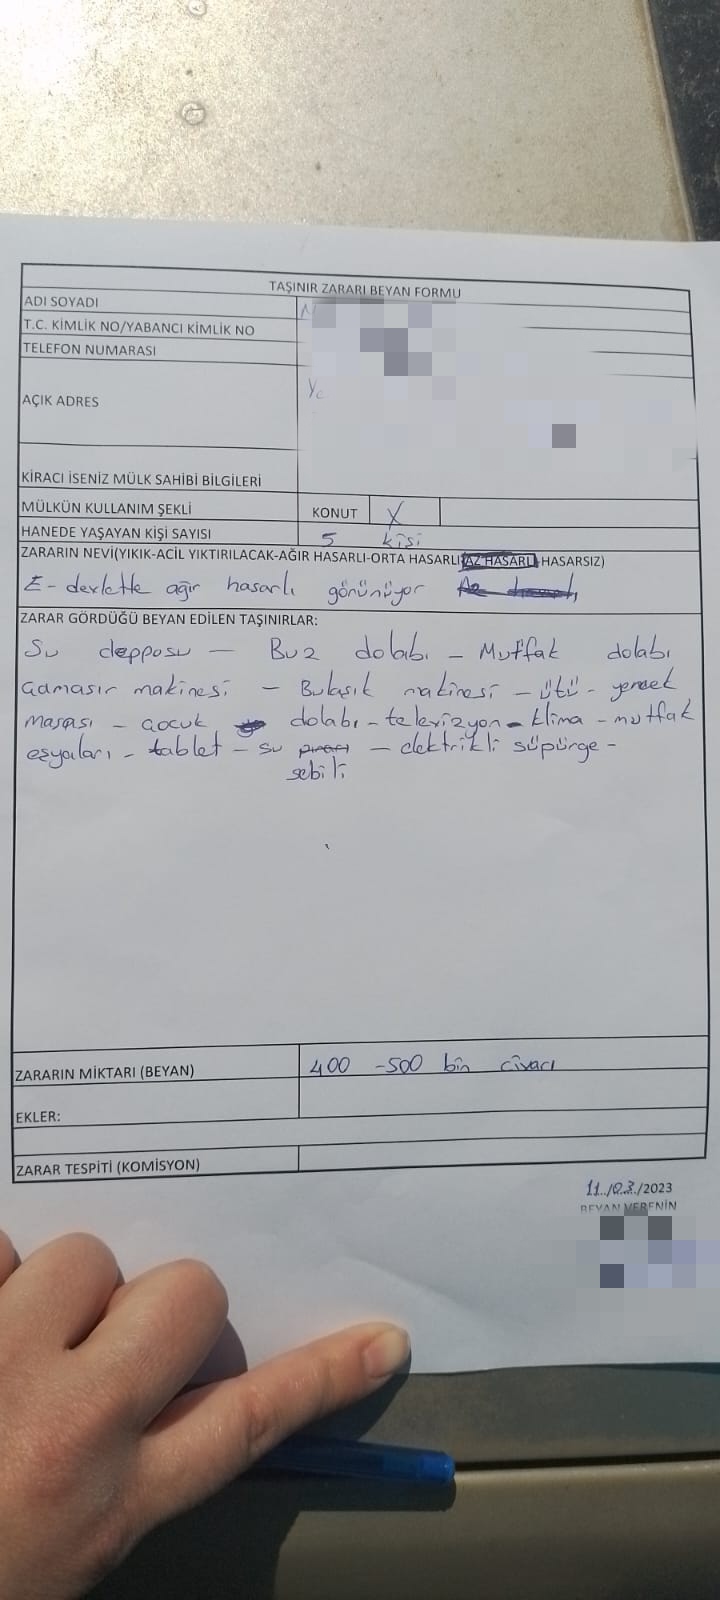 TAŞINIR ZARARI BEYAN FORMU
ADI SOYADI
T.C. KİMLİK NO/YABANCI KİMLİK NO
TELEFON NUMARASI
AÇIK ADRES
KİRACI İSENİZ MÜLK SAHİBİ BİLGİLERİ
MÜLKÜN KULLANIM ŞEKLİ KONUT X
HANEDE YAŞAYAN KİŞİ SAYISI 5 kişi
ZARARIN NEVİ(YIKIK-ACİL YIKTIRILACAK-AĞIR HASARLI-ORTA HASARLI-AZ HASARLI-HASARSIZ)
E-devlette ağır hasarlı görünüyor
ZARAR GÖRDÜĞÜ BEYAN EDİLEN TAŞINIRLAR:
Su depposu - Buz dolabı - Mutfak dolabı
Çamaşır makinesi - Bulaşık makinesi - ütü - yemek
masası - çocuk dolabı - televizyon - klima - mutfak
eşyaları - tablet - su - elektrikli süpürge -
sebili
ZARARIN MİKTARI (BEYAN) 400 -500 bin civarı
EKLER:
ZARAR TESPİTİ (KOMİSYON)
11../03./2023
BEYAN VERENİN